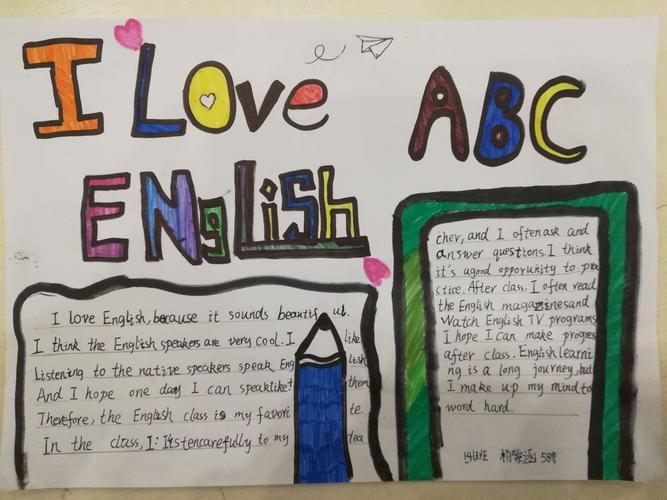 I Love
ABC
ENgLiSh
I love English, because it sounds beautiful.
I think the English speakers are very cool. I like
Listening to the native speakers speak English
And I hope one day I can speaklike them
Therefore, the English class is my favorite.
In the class, I: listencarefully to my tea
cher, and I oftenask and
answer questions. I think
it's agood opporunity to pra
ctice. After class, I often read
the English magazinesand
Watch English TV programs
I hope I Can make progres
after class. English learni
ng is a long journey, but
I make up my mind to
word hard.
14班 58号